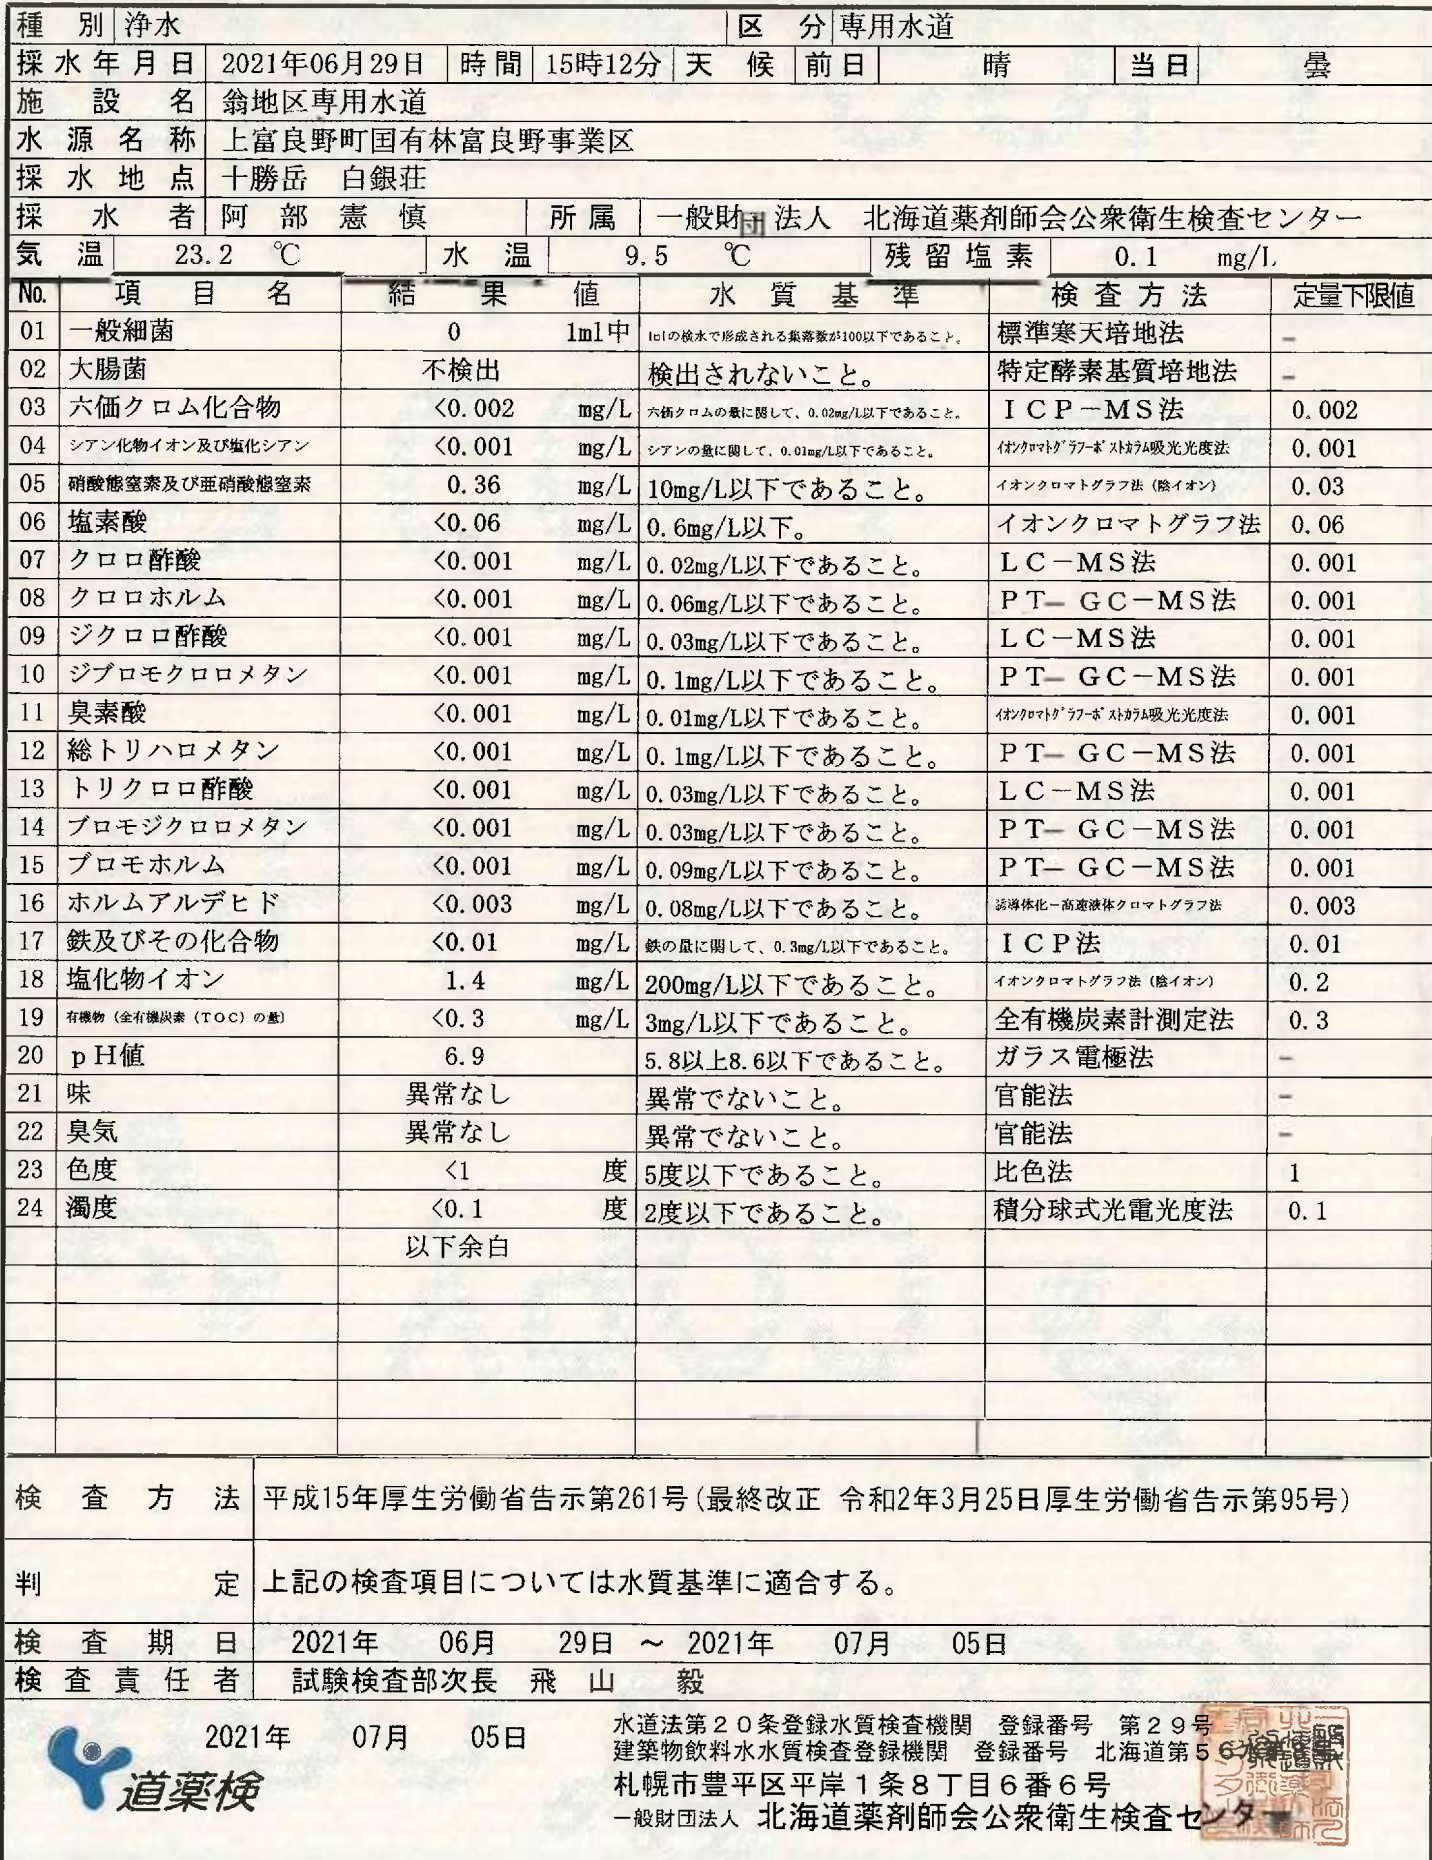 種別 浄水 区分 専用水道
採水年月日 2021年06月29日 時間 15時12分 天候 前日 晴 当日 曇
施設名 翁地区専用水道
水源名称 上富良野町国有林富良野事業区
採水地点 十勝岳 白銀荘
採水者 阿部憲慎 所属 一般財団法人 北海道薬剤師会公衆衛生検査センター
気温 23.2 ℃ 水温 9.5 ℃ 残留塩素 0.1 mg/L
No. 項目名 結果値 水質基準 検査方法 定量下限値
01 一般細菌 0 1ml中 1mlの検水で形成される集落数が100以下であること。 標準寒天培地法 -
02 大腸菌 不検出 検出されないこと。 特定酵素基質培地法 -
03 六価クロム化合物 <0.002 mg/L 六価クロムの量に関して、0.02mg/L以下であること。 ICP-MS法 0.002
04 シアン化物イオン及び塩化シアン <0.001 mg/L シアンの量に関して、0.01mg/L以下であること。 イオンクロマトグラフ-ポストカラム吸光光度法 0.001
05 硝酸態窒素及び亜硝酸態窒素 0.36 mg/L 10mg/L以下であること。 イオンクロマトグラフ法(陰イオン) 0.03
06 塩素酸 <0.06 mg/L 0.6mg/L以下。 イオンクロマトグラフ法 0.06
07 クロロ酢酸 <0.001 mg/L 0.02mg/L以下であること。 LC-MS法 0.001
08 クロロホルム <0.001 mg/L 0.06mg/L以下であること。 PT-GC-MS法 0.001
09 ジクロロ酢酸 <0.001 mg/L 0.03mg/L以下であること。 LC-MS法 0.001
10 ジブロモクロロメタン <0.001 mg/L 0.1mg/L以下であること。 PT-GC-MS法 0.001
11 臭素酸 <0.001 mg/L 0.01mg/L以下であること。 イオンクロマトグラフ-ポストカラム吸光光度法 0.001
12 総トリハロメタン <0.001 mg/L 0.1mg/L以下であること。 PT-GC-MS法 0.001
13 トリクロロ酢酸 <0.001 mg/L 0.03mg/L以下であること。 LC-MS法 0.001
14 ブロモジクロロメタン <0.001 mg/L 0.03mg/L以下であること。 PT-GC-MS法 0.001
15 ブロモホルム <0.001 mg/L 0.09mg/L以下であること。 PT-GC-MS法 0.001
16 ホルムアルデヒド <0.003 mg/L 0.08mg/L以下であること。 誘導体化-高速液体クロマトグラフ法 0.003
17 鉄及びその化合物 <0.01 mg/L 鉄の量に関して、0.3mg/L以下であること。 ICP法 0.01
18 塩化物イオン 1.4 mg/L 200mg/L以下であること。 イオンクロマトグラフ法(陰イオン) 0.2
19 有機物(全有機炭素(TOC)の量) <0.3 mg/L 3mg/L以下であること。 全有機炭素計測定法 0.3
20 pH値 6.9 5.8以上8.6以下であること。 ガラス電極法 -
21 味 異常なし 異常でないこと。 官能法 -
22 臭気 異常なし 異常でないこと。 官能法 -
23 色度 <1 度 5度以下であること。 比色法 1
24 濁度 <0.1 度 2度以下であること。 積分球式光電光度法 0.1
以下余白
検査方法 平成15年厚生労働省告示第261号(最終改正 令和2年3月25日厚生労働省告示第95号)
判定 上記の検査項目については水質基準に適合する。
検査期日 2021年 06月 29日 ~ 2021年 07月 05日
検査責任者 試験検査部次長 飛山 毅
2021年 07月 05日
道薬検
水道法第20条登録水質検査機関 登録番号 第29号
建築物飲料水水質検査登録機関 登録番号 北海道第56
札幌市豊平区平岸1条8丁目6番6号
一般財団法人 北海道薬剤師会公衆衛生検査センター